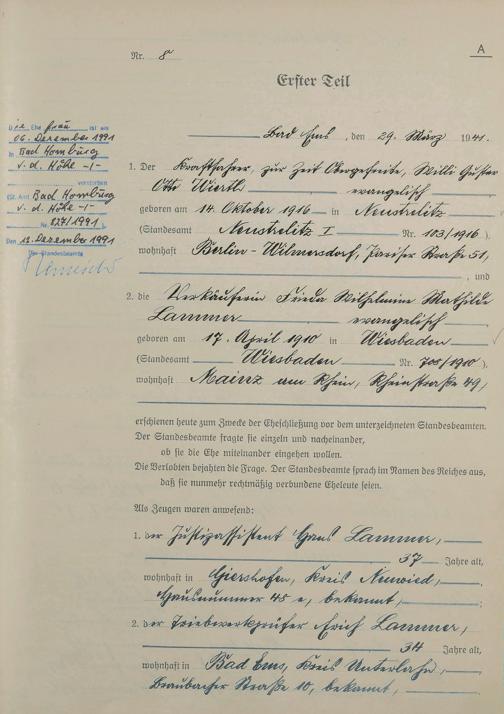 Nr. 8
A
Erster Teil
Bad Ems, den 29. März 1941.
Die Ehefrau ist am
06. Dezember 1991
in Bad Homburg
v. d. Höhe -/-
verstorben
Sta. Amt Bad Homburg
v. d. Höhe -/-
Nr. 827/1991
Den 12. Dezember 1991
Der Standesbeamte
1. Der Kraftfahrer, zur Zeit Obergefreite, Willi Gustav
Otto Wiertli evangelisch
geboren am 14. Oktober 1916 in Neustrelitz
(Standesamt Neustrelitz I Nr. 183/1916).
wohnhaft Berlin-Wilmersdorf, Pariser Straße 51,
, und
2. die Verkäuferin Frieda Wilhelmine Mathilde
Lammer evangelisch
geboren am 17. April 1910 in Wiesbaden
(Standesamt Wiesbaden Nr. 708/1910).
wohnhaft Mainz am Rhein, Rheinstraße 49,
erschienen heute zum Zwecke der Eheschließung vor dem unterzeichneten Standesbeamten.
Der Standesbeamte fragte sie einzeln und nacheinander,
ob sie die Ehe miteinander eingehen wollen.
Die Verlobten bejahten die Frage. Der Standesbeamte sprach im Namen des Reiches aus,
daß sie nunmehr rechtmäßig verbundene Eheleute seien.
Als Zeugen waren anwesend:
1. der Justizassistent Hans Lammer,
37 Jahre alt,
wohnhaft in Giershofen, Kreis Neuwied,
Hausnummer 45 e, bekannt,;
2. der Triebwerkprüfer Erich Lammer,
34 Jahre alt,
wohnhaft in Bad Ems, Kreis Unterlahn,
Braubacher Straße 10, bekannt,